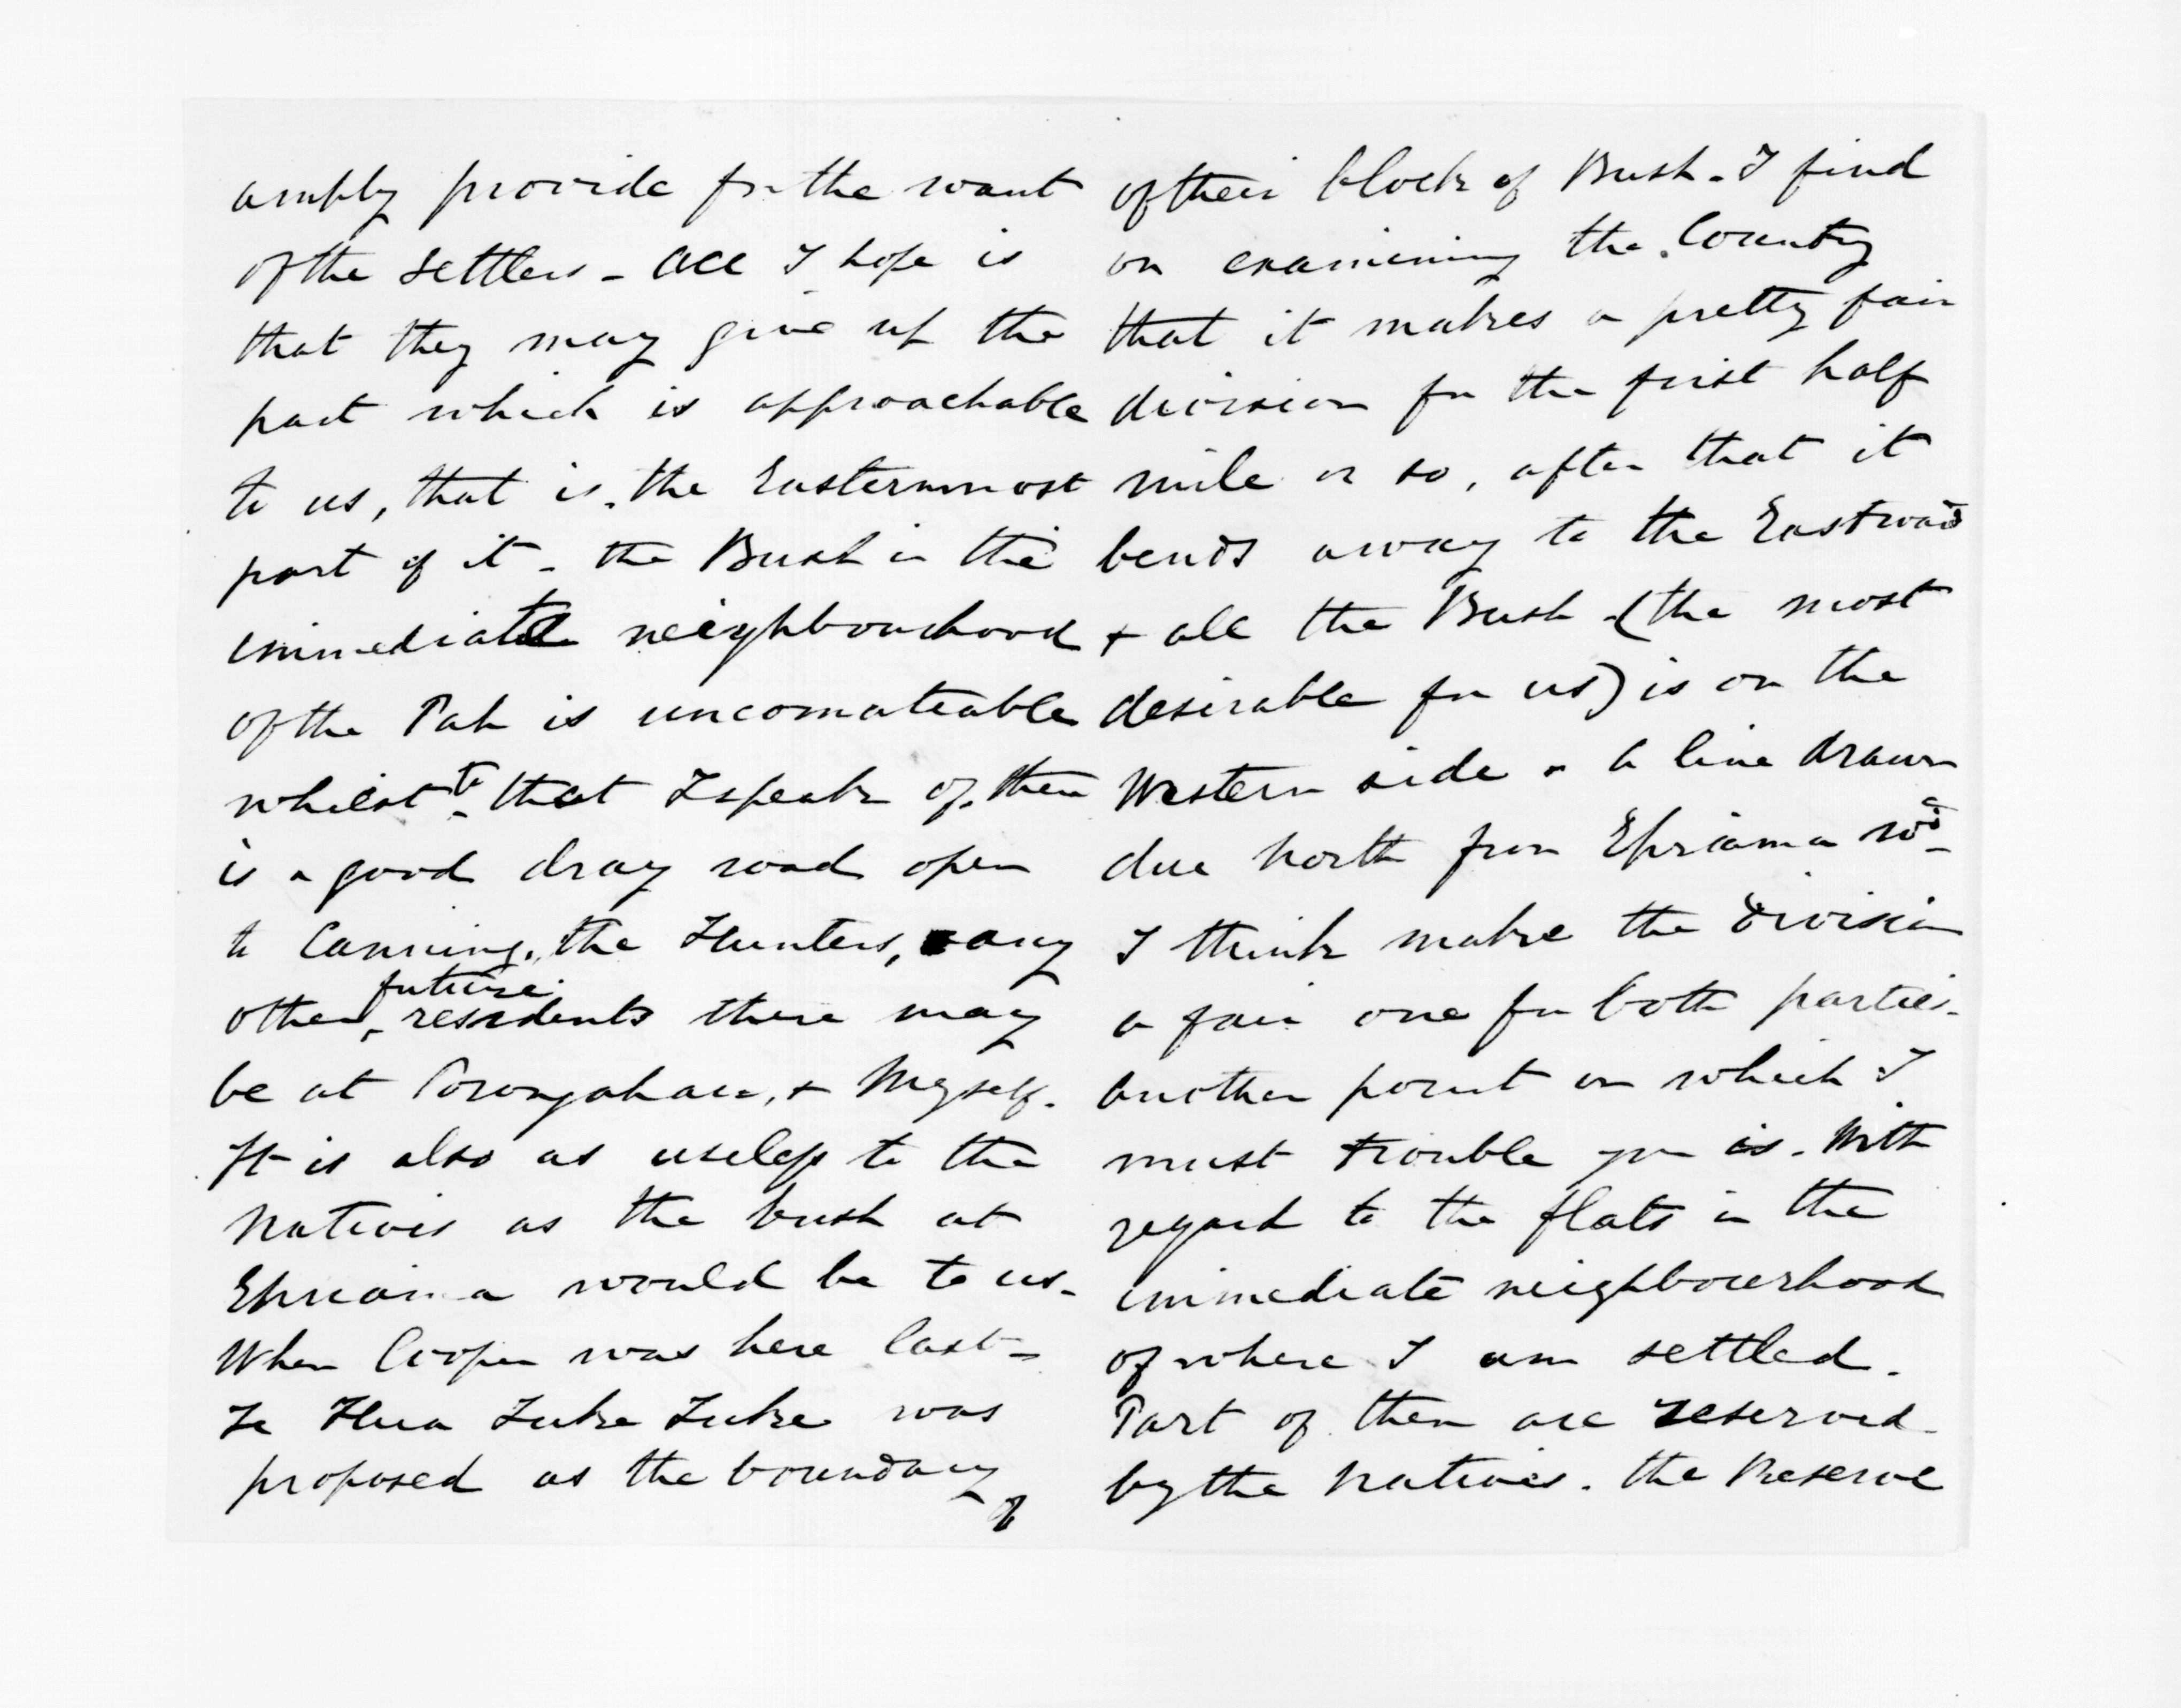 amply provide for the want
of the Settlers - All I hope is
that they may give up the
part which is approachable
to us, that is, the Easternmost
part of it - the Bush in the
immediate neighbourhood
of the Pah is uncomateable
whilst to that I speak of, there
is a good dray road open
to Canning, the Hunters, any
other future residents there may
be at Porongahau, + Myself.
It is also as useless to the
Natives as the bush at
Ehriama would be to us -
When Cooper was here last -
Te Hua Tuke Tuke was
proposed as the boundary
of
of their block of Bush - I find
on examining the Country
that it makes a pretty fair
division for the first half
mile or so, after that it
bends away to the Eastward
+ all the Bush - (the most
desirable for us) is on the
Western side - A line drawn
due North from Ehriama wd
I think make the division
a fair one for both parties -
Another point on which I
must trouble you is. With
regard to the flats in the
immediate neighbourhood
of where I am settled.
Part of them are reserved
by the Natives. the Reserve